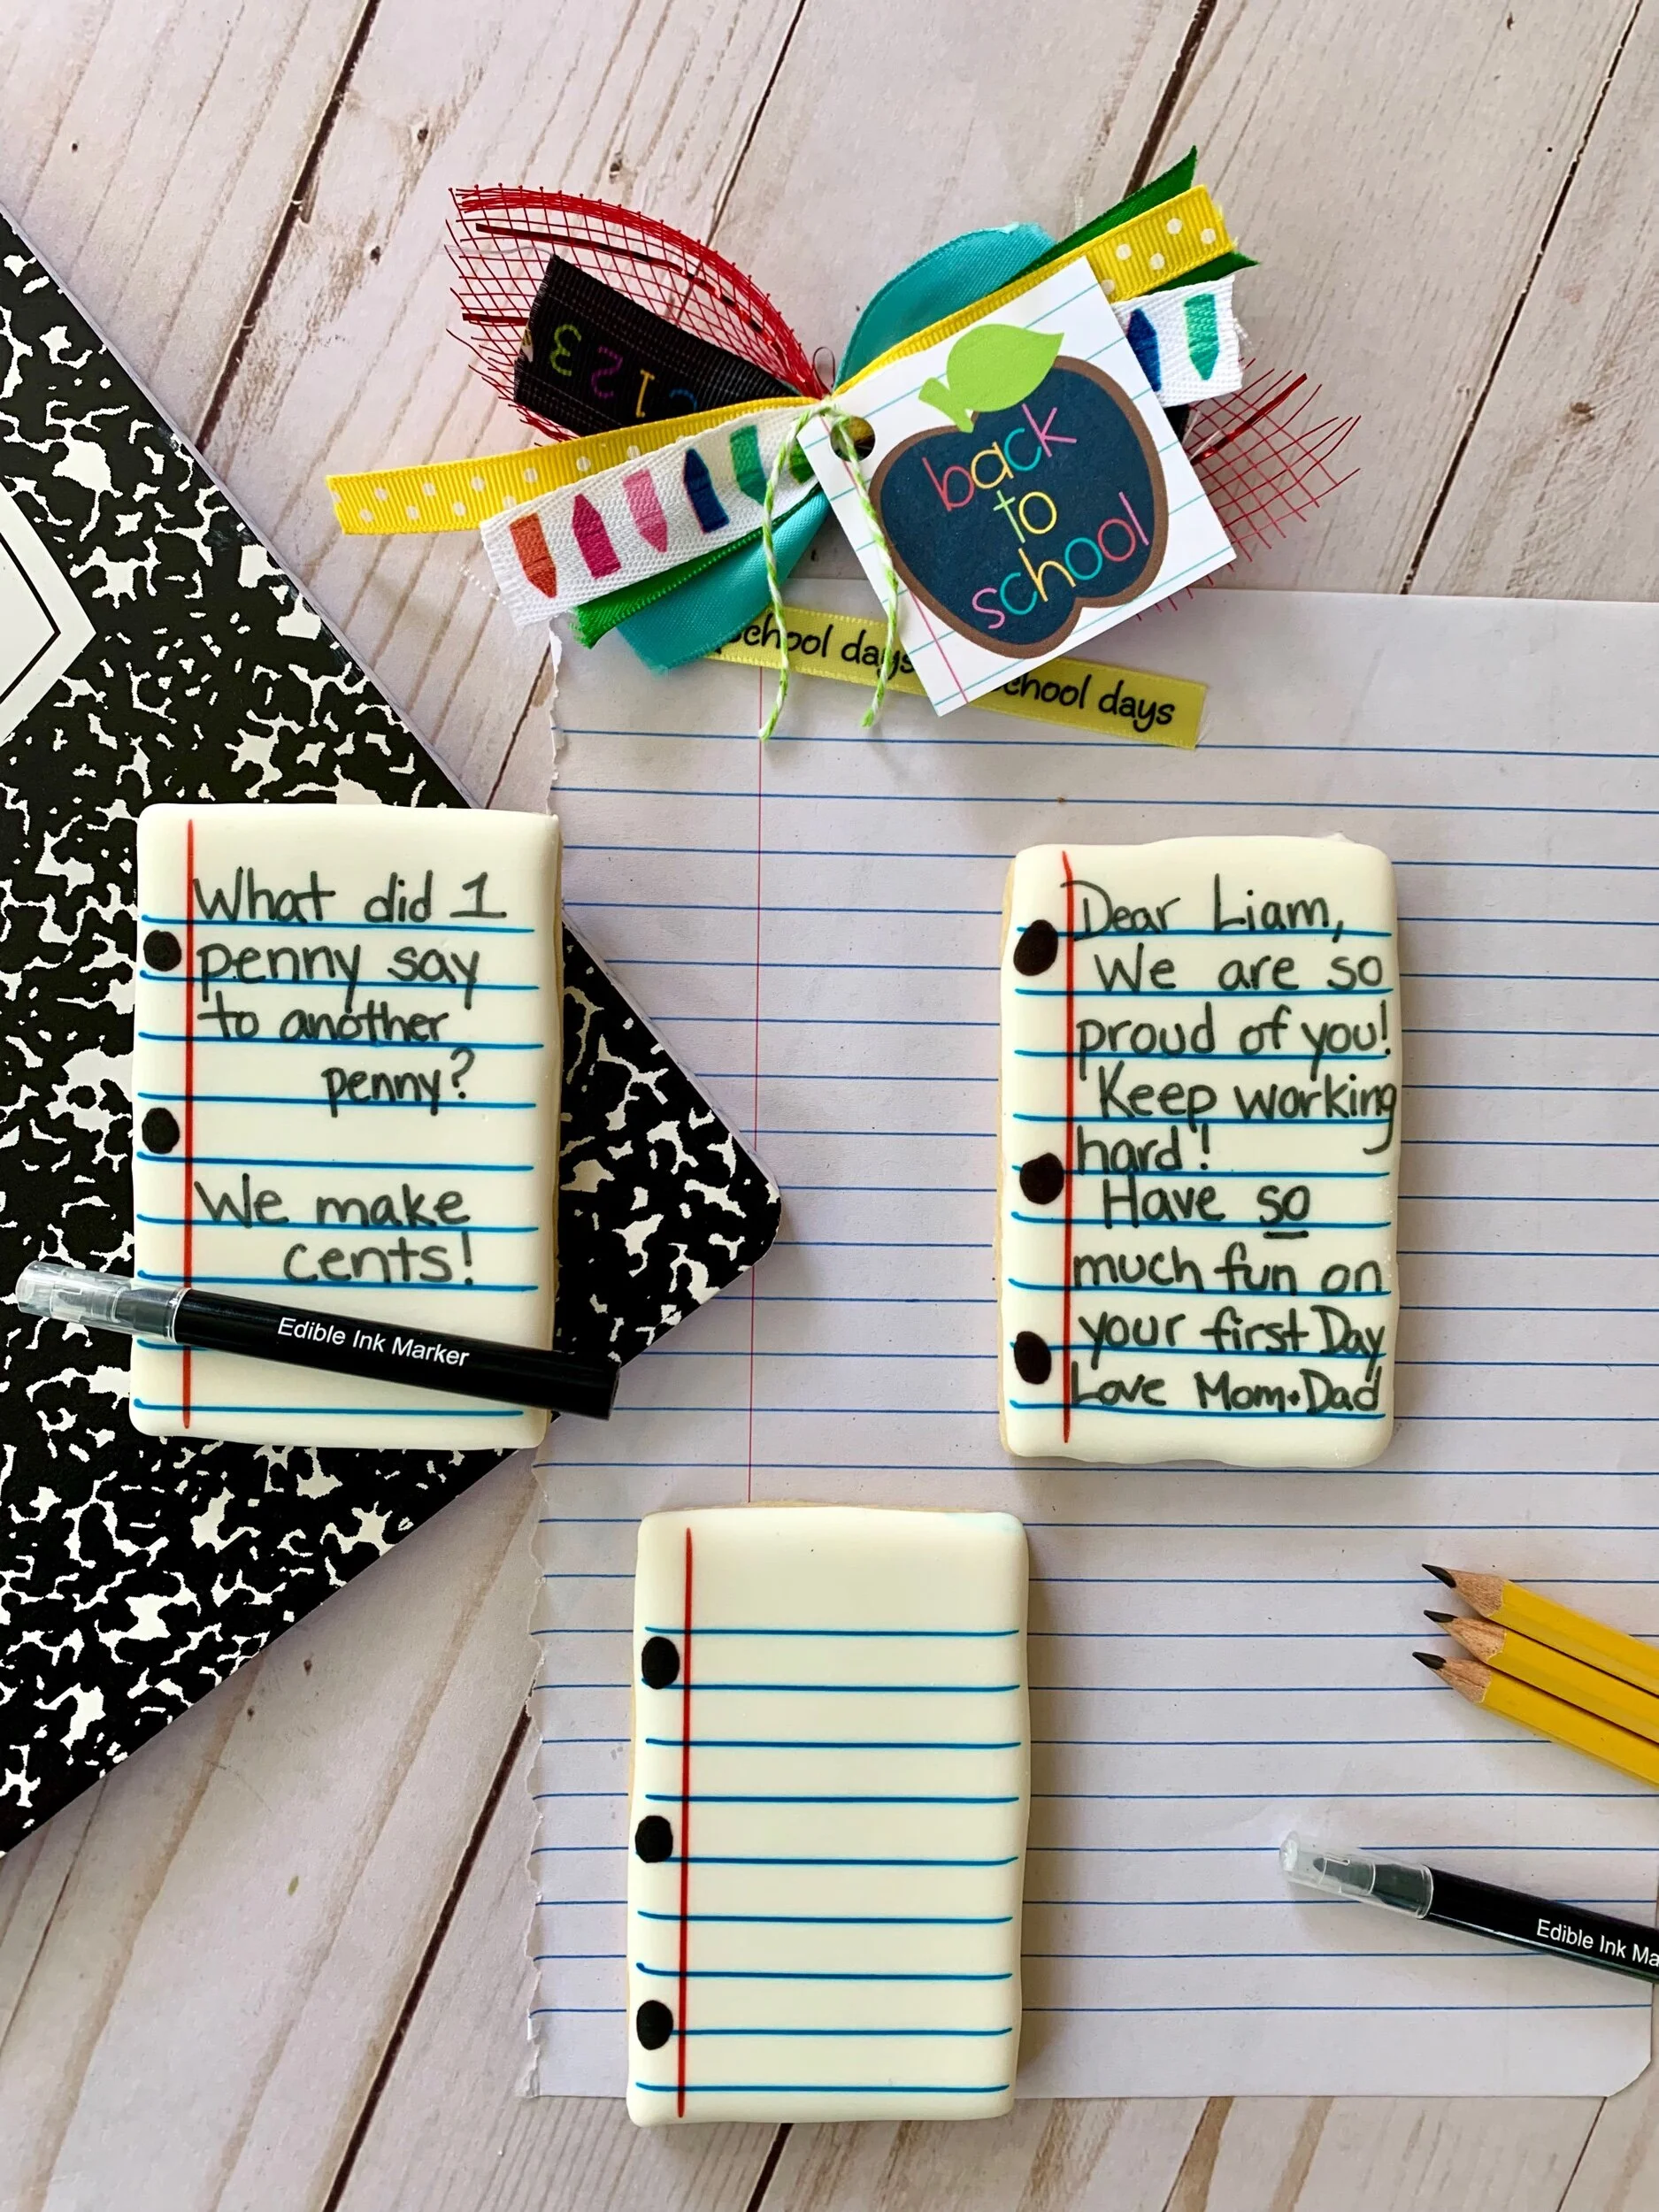 3 2 1
back
to
school
school days
school days
What did 1
penny say
to another
penny?
We make
cents!
Edible Ink Marker
Dear Liam,
We are so
proud of you!
Keep working
hard!
Have so
much fun on
your first Day
Love Mom+Dad
Edible Ink